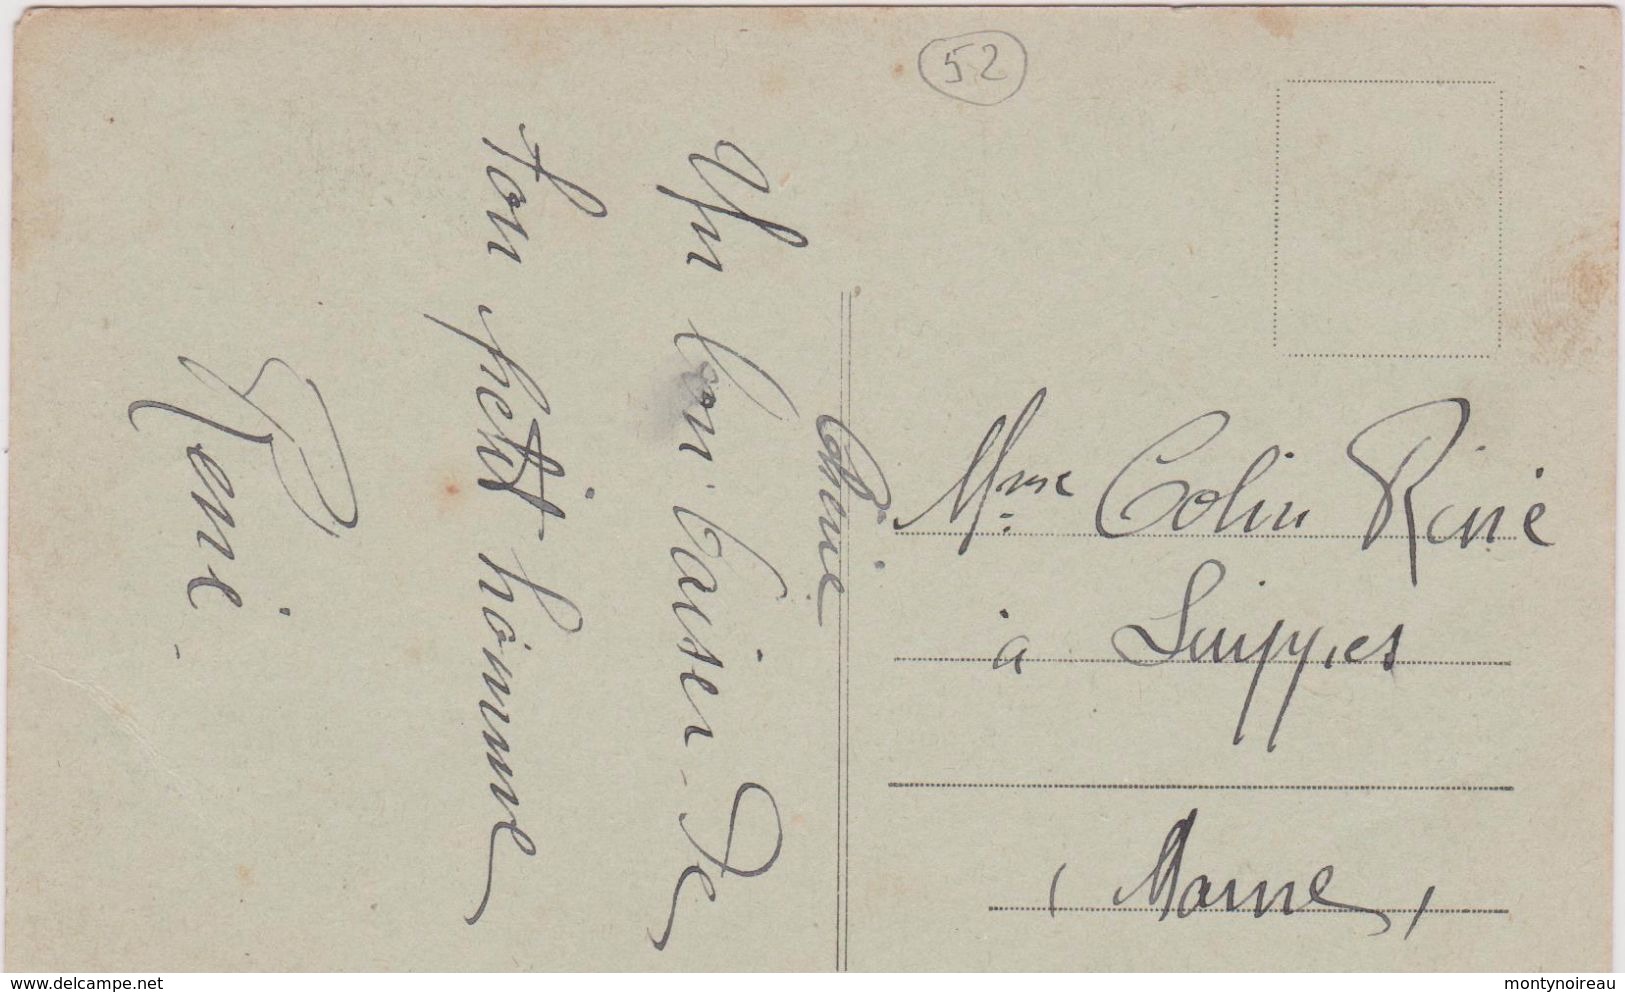 52
Chérie
Un bon baiser De
ton petit homme
René
Mme Colin René
à Suippes
(Marne)
www.delcampe.net
montynoireau